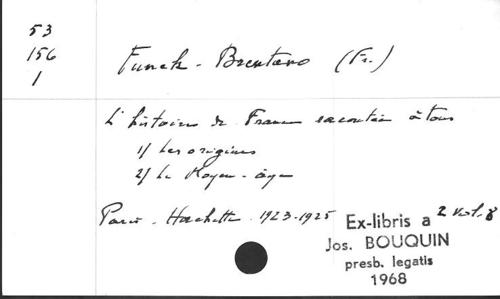 53
156
1
Funck-Brentano (Fr.)
L'histoire de France racontée à tous
1/ Les origines
2/ Le Moyen-âge
Paris - Hachette - 1923-1925 2 vol. 8
Ex-libris a
Jos. BOUQUIN
presb. legatis
1968